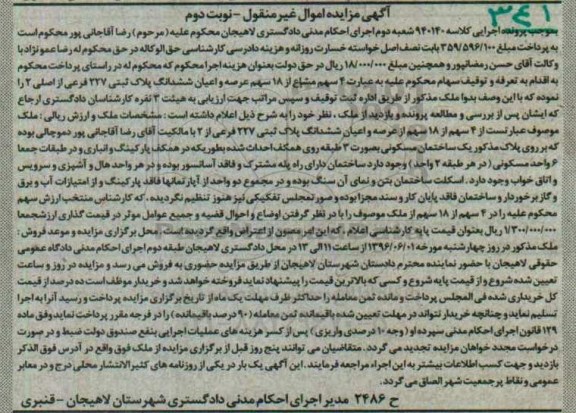 ۳۴۱
آگهی مزایده اموال غیر منقول - نوبت دوم
بموجب پرونده اجرایی کلاسه ۹۴۰۱۴۰ شعبه دوم اجرای احکام مدنی دادگستری لاهیجان محکوم علیه (مرحوم) رضا آقاجانی پور محکوم است
به پرداخت مبلغ ۳۵۹/۵۹۶/۱۰۰ بابت نصف اصل خواسته خسارت روزانه و هزینه دادرسی کارشناسی حق الوکاله در حق محکوم له رضا عمو نژاد با
وکالت آقای حسن رمضانپور و همچنین مبلغ ۱۸/۰۰۰/۰۰۰ ریال در حق دولت بعنوان هزینه اجرا محکوم که محکوم له در راستای پرداخت محکوم
به اقدام به تعرفه و توقیف سهام محکوم علیه به عبارت ۴ سهم مشاع از ۱۸ سهم عرصه و اعیان ششدانگ پلاک ثبتی ۲۲۷ فرعی از اصلی ۲ را
نموده که با این وصف بدوا ملک مذکور از طریق اداره ثبت توقیف و سپس مراتب جهت ارزیابی به هیئت ۳ نفره کارشناسان دادگستری ارجاع
که ایشان پس از بررسی و مطالعه پرونده و بازدید از ملک ، نظر خود را به شرح ذیل اعلام داشته است : مشخصات ملک و ارزش ریالی : ملک
موصوف عبارتست از ۴ سهم از ۱۸ سهم از عرصه و اعیان ششدانگ پلاک ثبتی ۲۲۷ فرعی از ۲ با مالکیت آقای رضا آقاجانی پور دموچالی بوده
که بر روی پلاک مذکور یک ساختمان مسکونی بصورت ۳ طبقه روی همکف احداث شده بطوریکه در همکف پارکینگ و انباری و در طبقات جمعا
۶ واحد مسکونی (در هر طبقه ۲ واحد) وجود دارد ساختمان دارای راه پله مشترک و فاقد آسانسور بوده و در هر واحد هال و آشپزی و سرویس
و اتاق خواب وجود دارد . اسکلت ساختمان بتن و نمای آن سنگ بوده و در مجموع دو واحد از آپارتمانها فاقد پارکینگ و از امتیازات آب و برق
و گاز برخوردار و ساختمان فاقد پایان کار و سند مجزا بوده و صورتمجلس تفکیکی نیز هنوز تنظیم نگردیده . که کارشناس منتخب ارزش سهم
محکوم علیه را در ۴ سهم از ۱۸ سهم از ملک موصوف را با در نظر گرفتن اوضاع و احوال قضیه و جمیع عوامل موثر در قیمت گذاری ارزشجمعا
۱/۳۰۰/۰۰۰/۰۰۰ ریال بعنوان قیمت پایه کارشناسی اعلام . که این امر مصون از اعتراض واقع گردیده است . محل برگزاری مزایده و موعد فروش :
ملک مذکور در روز چهارشنبه مورخه ۱۳۹۶/۰۶/۰۱ از ساعت ۱۱ الی ۱۲ در محل دادگستری لاهیجان طبقه دوم اجرای احکام مدنی دادگاه عمومی
حقوقی لاهیجان با حضور نماینده محترم دادستان شهرستان لاهیجان از طریق مزایده حضوری به فروش می رسد و مزایده در روز و ساعت
تعیین شده شروع و از قیمت پایه شروع و کسی که بالاترین قیمت را پیشنهاد نماید فروخته خواهد شد و خریدار موظف است ده درصد از قیمت
کل خریداری شده فی المجلس پرداخت و مانده ثمن معامله را حداکثر ظرف مهلت یک ماه از تاریخ برگزاری مزایده پرداخت و رسید آنرا به اجرا
تسلیم نماید و چنانچه خریدار نتواند در مهلت تعیین شده باقیمانده ثمن معامله (۹۰ درصد باقیمانده) را در فرجه مقرر پرداخت نماید وفق ماده
۱۲۹ قانون اجرای احکام مدنی سپرده او (وجه ۱۰ درصدی واریزی) پس از کسر هزینه های عملیات اجرایی بنفع صندوق دولت ضبط و در صورت
درخواست مجدد خواهان مزایده تجدید می گردد . متقاضیان می توانند پنج روز قبل از برگزاری مزایده از ملک فوق واقع در آدرس فوق الذکر
بازدید و جهت کسب اطلاعات بیشتر به این اجراء مراجعه فرمایند . این آگهی یک بار در یکی از روزنامه های کثیرالانتشار محلی درج و در معابر
عمومی و نقاط پر جمعیت شهر الصاق می گردد.
ح ۲۴۸۶ مدیر اجرای احکام مدنی دادگستری شهرستان لاهیجان - قنبری